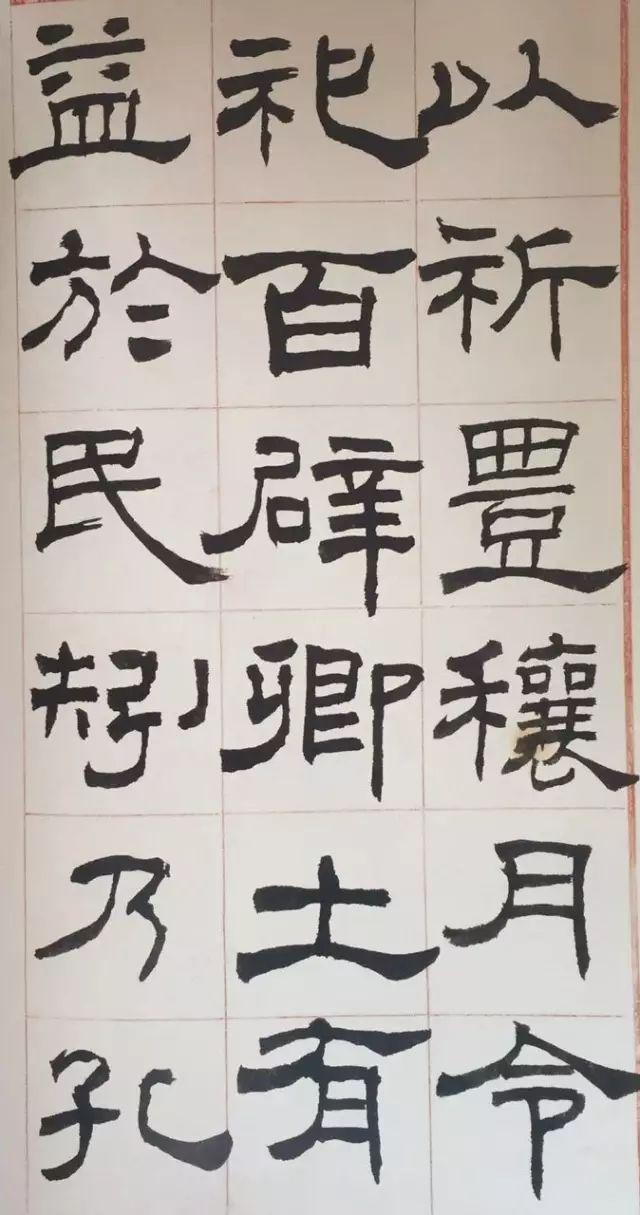 以祈豊穰月令
祀百辟卿士有
益於民矧乃孔